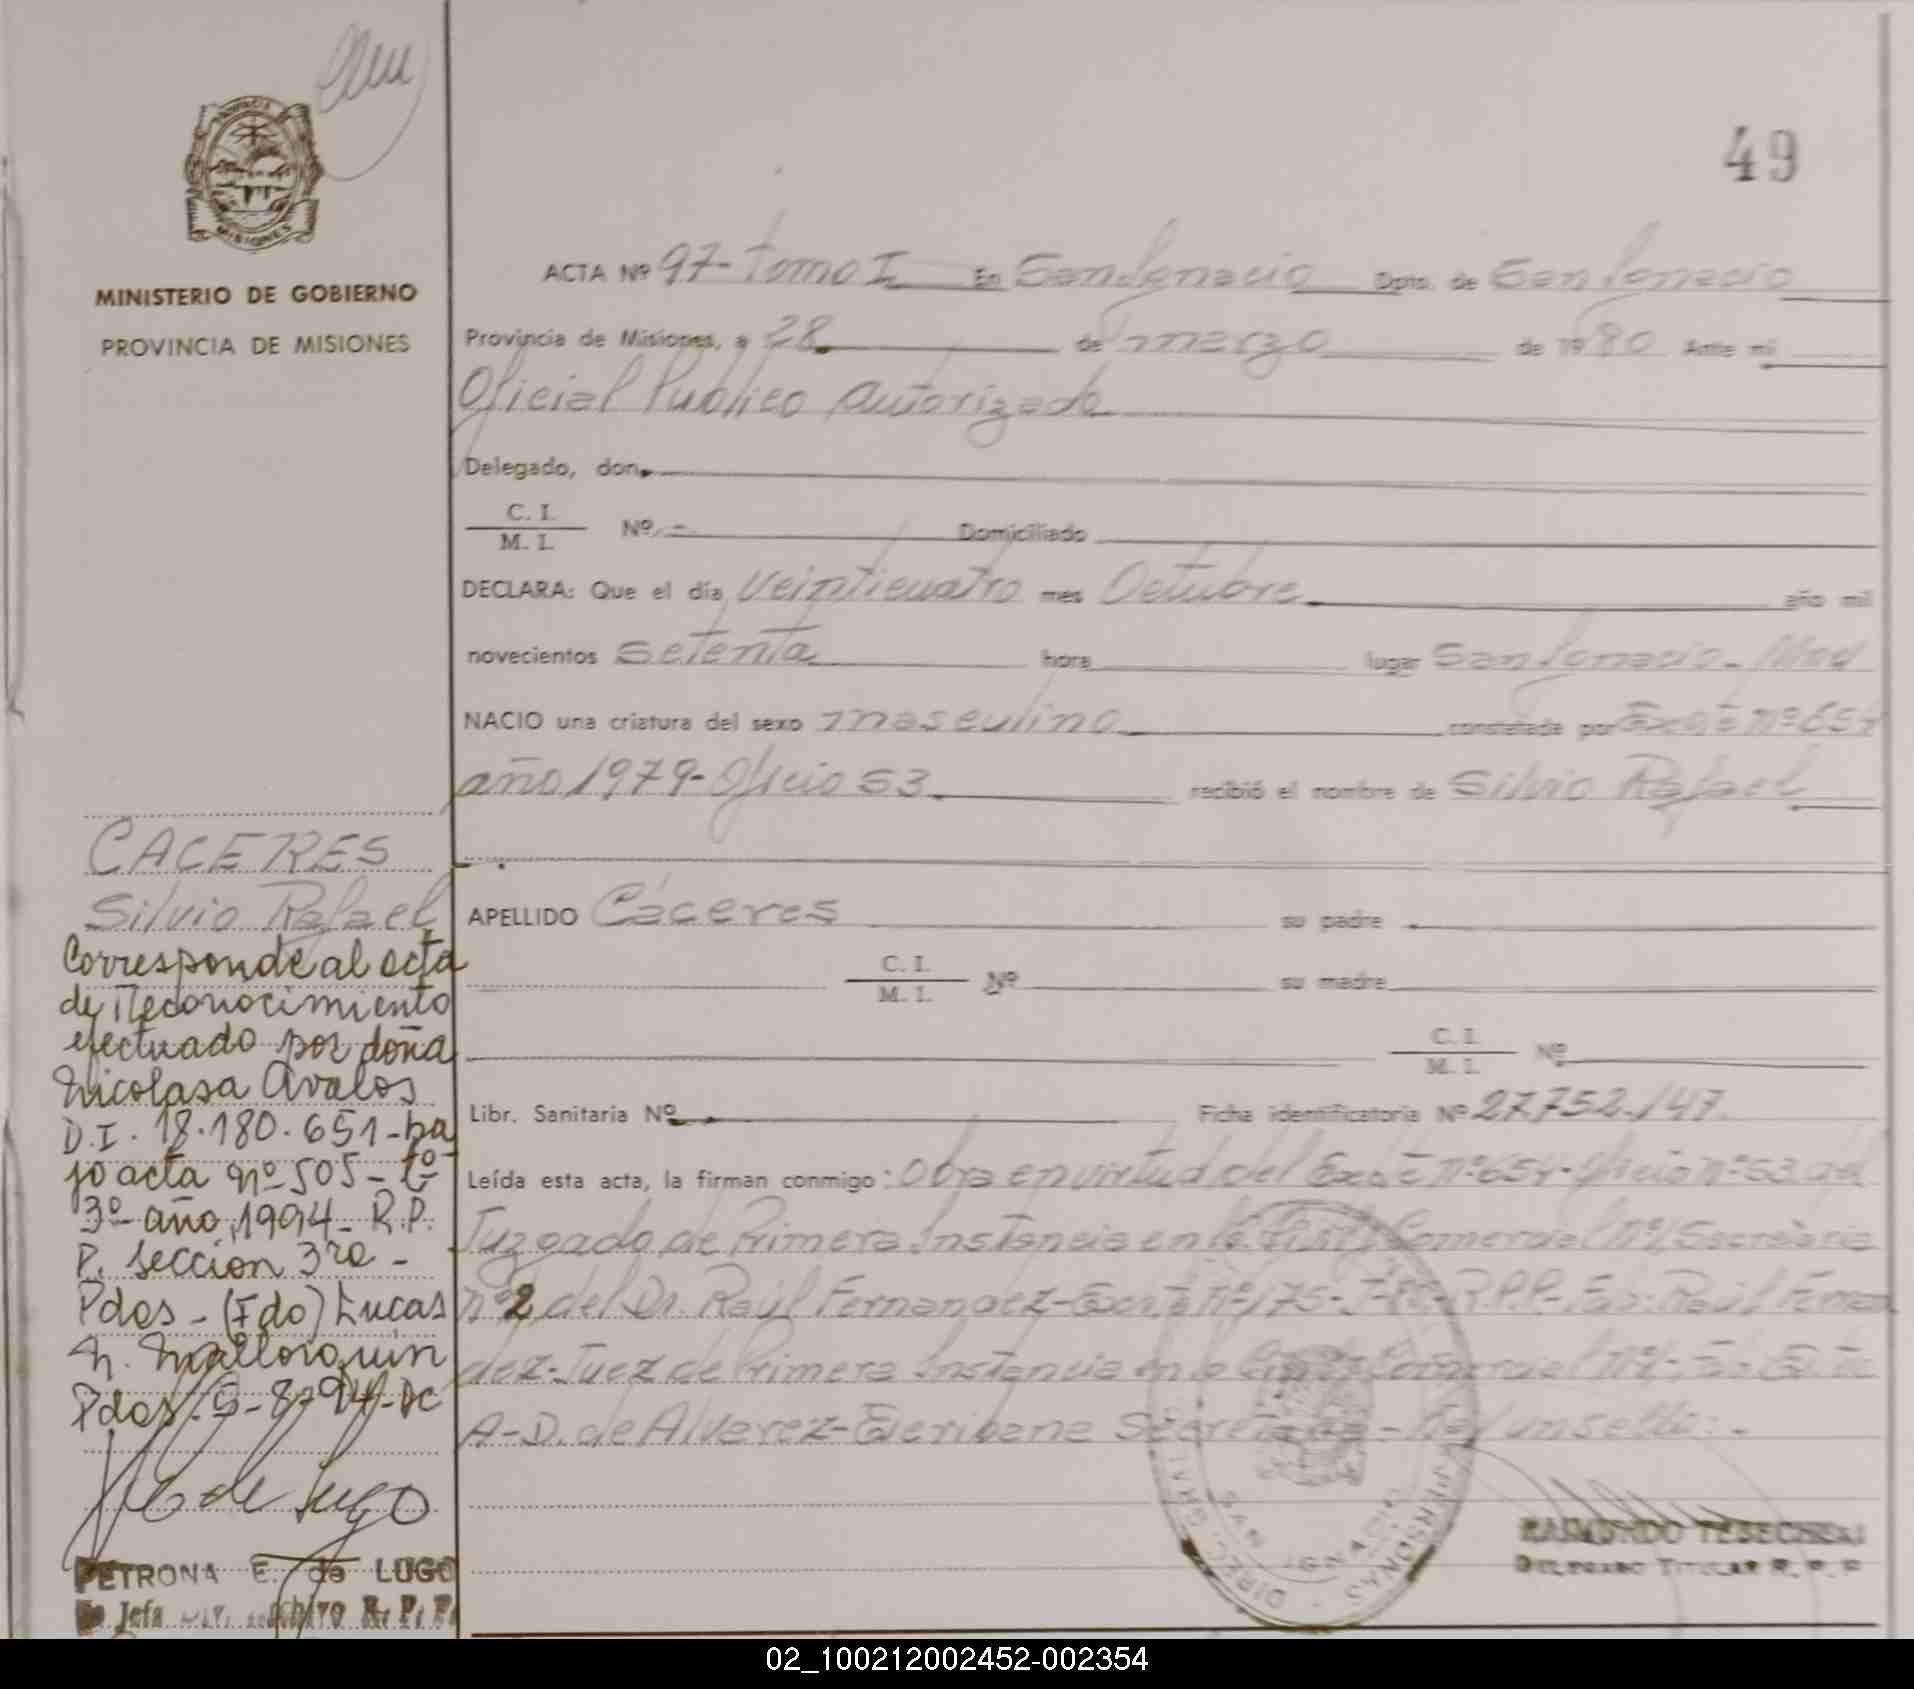 49
PROVINCIA
MISIONES
MINISTERIO DE GOBIERNO
PROVINCIA DE MISIONES
ACTA Nº 97-tomo I En San Ignacio Dpto. de San Ignacio
Provincia de Misiones, a 28 de marzo de 1980 Ante mi
Oficial Publico Autorizado
Delegado, don
C. I.
M. I. Nº - Domiciliado
DECLARA: Que el día Veinticuatro mes Octubre año mil
novecientos setenta hora lugar San Ignacio - Mnes
NACIO una criatura del sexo masculino constatada por Expte nº 654
año 1979- Oficio 53 recibió el nombre de Silvio Rafael
APELLIDO Cáceres su padre
C. I.
M. I. Nº su madre
C. I.
M. I. Nº
Libr. Sanitaria Nº Ficha identificatoria Nº 27.752.147.
Leída esta acta, la firman conmigo: Obra en virtud del Expte nº 654- Oficio nº 53 del
Juzgado de Primera Instancia en lo Civil y Comercial nº 1, Secretaria
nº 2 del Dr. Raúl Fernandez- Expte nº 175-I-80- R.P.P.- Fdo. Raúl Fernan
dez- Juez de Primera Instancia en lo Civil y Comercial nº 1-
A-D. de Alverez- Escribana Secretaria -
RAIMUNDO
DELEGADO TITULAR R. P. P
CACERES
Silvio Rafael
Corresponde al acta
de Reconocimiento
efectuado por doña
Nicolasa Avalos
D.I. 18.180.651-ba
jo acta nº 505- tº
3º año 1994- R.P.
P. seccion 3ra -
Pdas - (Fdo) Lucas
N. Mallorquin
Pdas. 5-8-94-
de Lugo
PETRONA E. de LUGO
Jefa Archivo R. P. P.
02_100212002452-002354